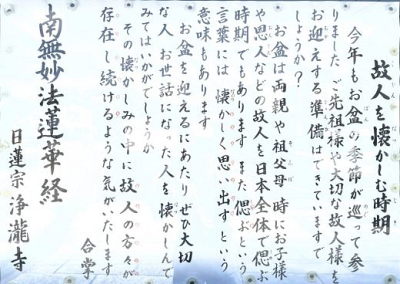 故人を懐かしむ時期
今年もお盆の季節が巡って参
りました ご先祖様や大切な故人様を
お迎えする準備はできていますで
しょうか？
お盆は両親や祖父母 時にお子様
や恩人などの故人を日本全体で偲ぶ
時期でもあります また偲ぶという
言葉には 懐かしく思い出す という
意味もあります
お盆を迎えるにあたり ぜひ大切
な人 お世話になった人を懐かしんで
みてはいかがでしょうか
その懐かしみの中に 故人の方々が
存在し続けるような気がいたします
合掌
南無妙法蓮華経
日蓮宗 浄瀧寺